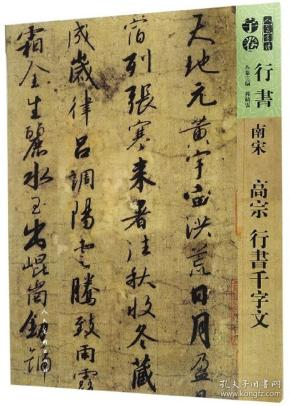 行書
南宋
高宗 行書千字文
天地元黄宇宙洪荒日月盈
宿列張寒来暑往秋收冬藏
成歲律呂調陽雲騰致雨露
霜金生麗水玉出崐崗
孔夫子旧书网